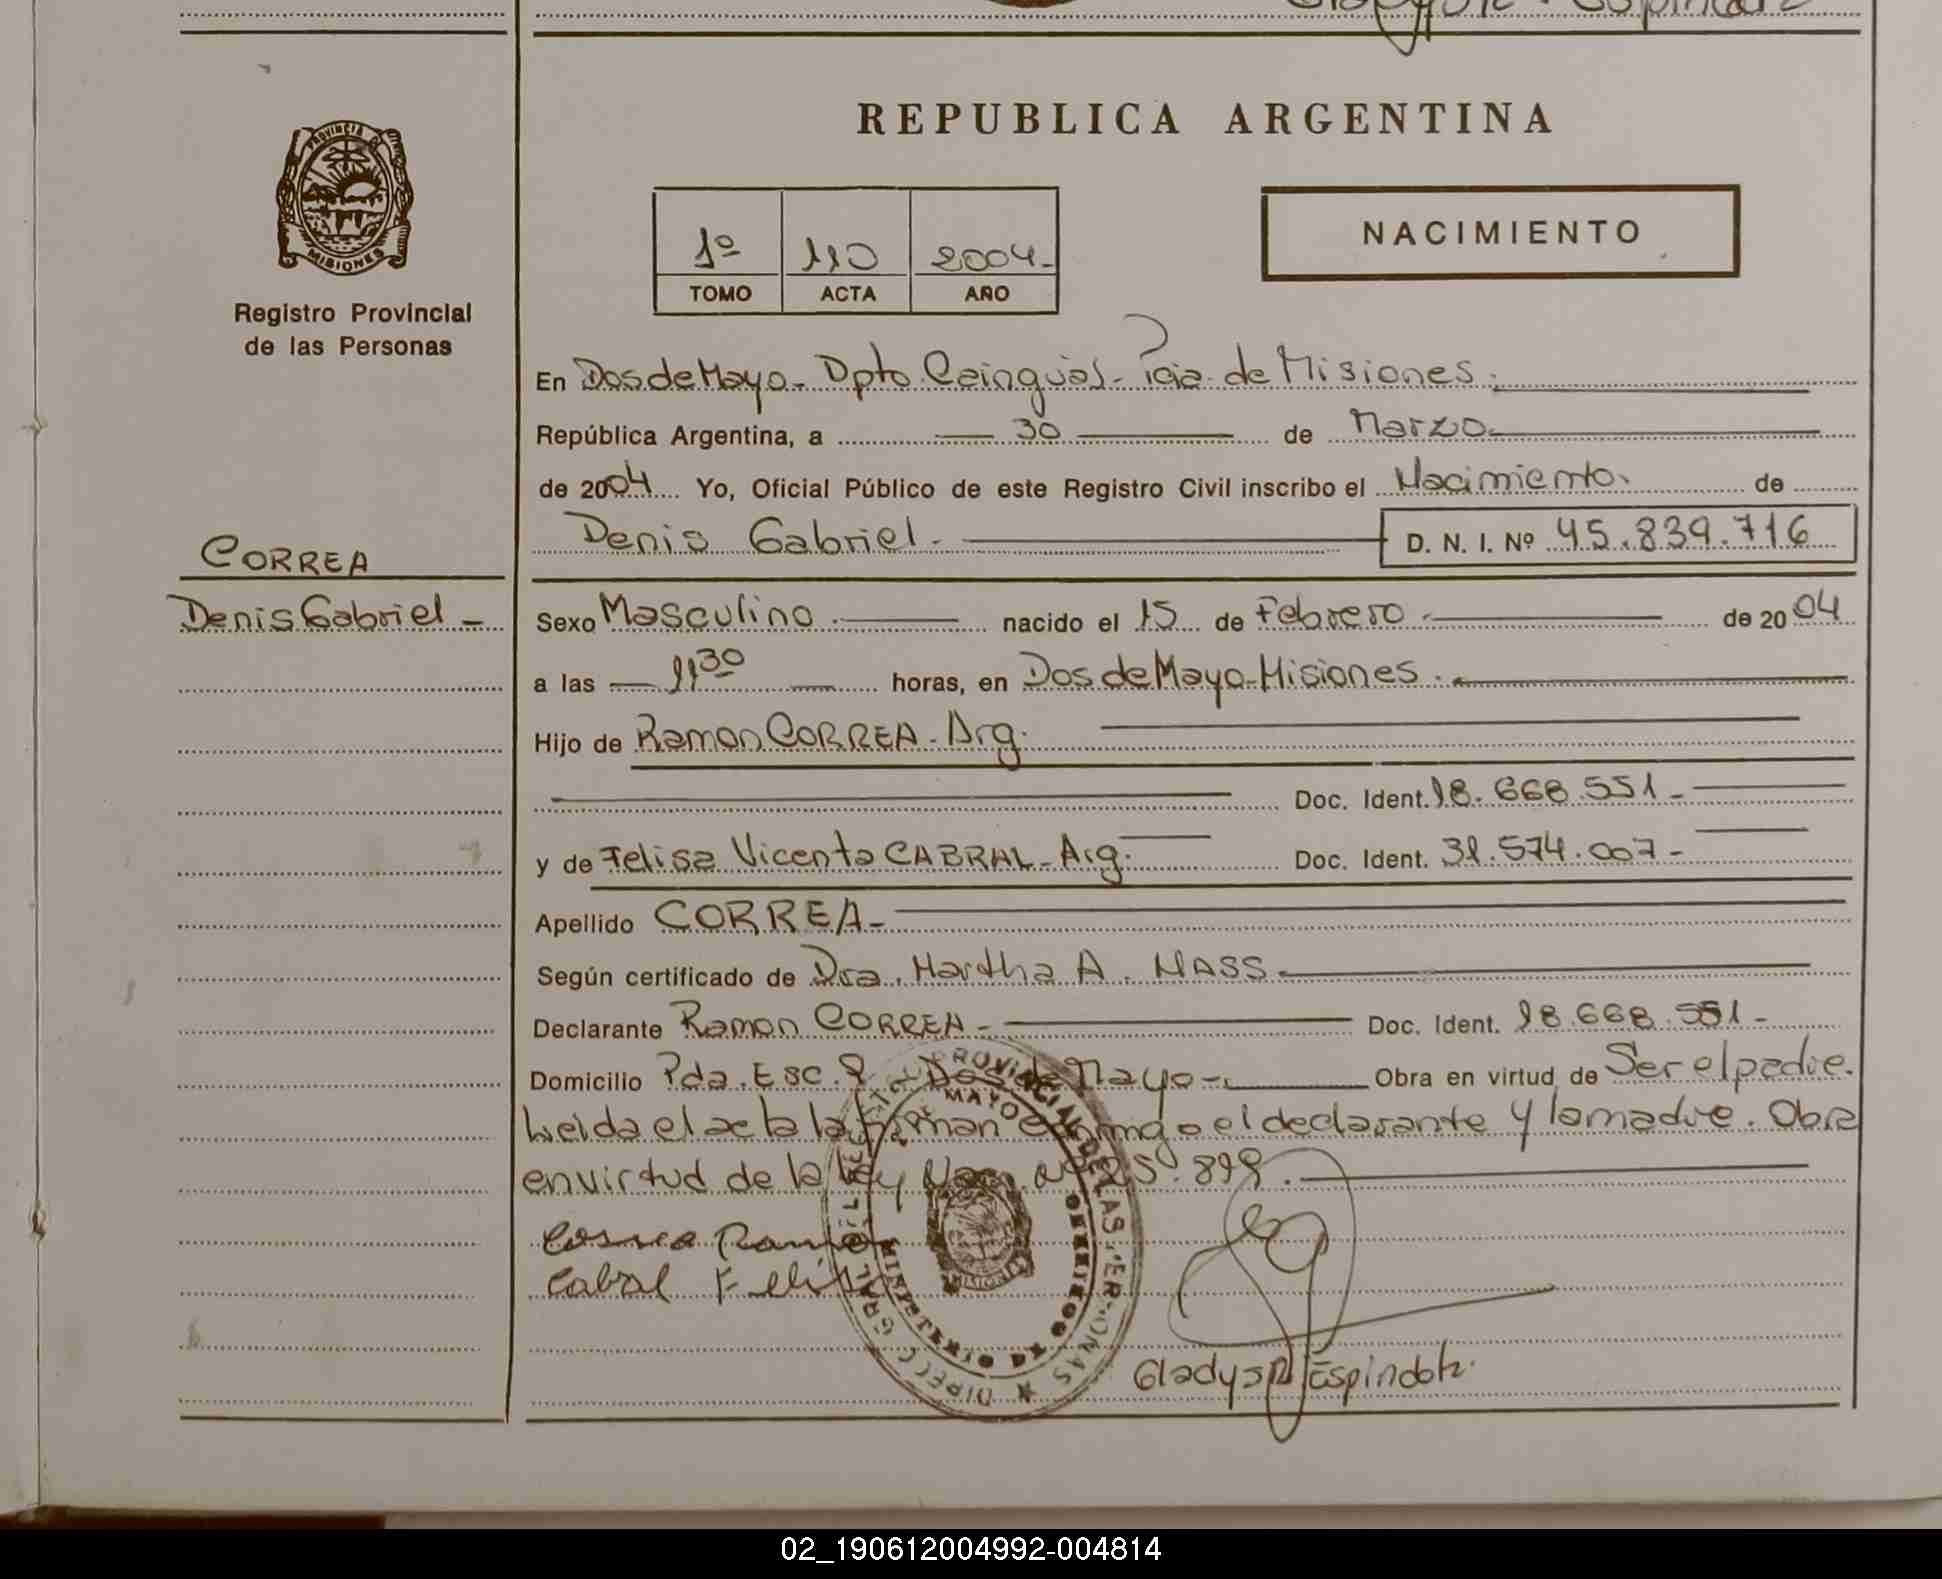 REPUBLICA ARGENTINA
PROVINCIA DE
MISIONES
Registro Provincial
de las Personas
1º 110 2004-
TOMO ACTA AÑO
NACIMIENTO
En Dos de Mayo- Dpto Cainguás- Pcia. de Misiones.
República Argentina, a 30 de Marzo
de 2004 Yo, Oficial Público de este Registro Civil inscribo el Nacimiento. de
Denis Gabriel- D. N. I. Nº 45.839.716
CORREA
Denis Gabriel-
Sexo Masculino nacido el 15 de Febrero de 2004
a las 11 30 horas, en Dos de Mayo-Misiones.
Hijo de Ramon CORREA- Arg.
Doc. Ident. 18.668.551-
y de Felisa Vicenta CABRAL- Arg. Doc. Ident. 31.574.007-
Apellido CORREA-
Según certificado de Dra. Martha A. NASS
Declarante Ramon CORREA- Doc. Ident. 18.668.551-
Domicilio Pda. Esc. Dos de Mayo- Obra en virtud de Ser el padre.
Leida el acta la firman conmigo el declarante y la madre. Obra
en virtud de la ley Nac. nº 25.899.
Correa Ramon
Cabral Felisa
Gladys R Espindola
MISIONES
02_190612004992-004814